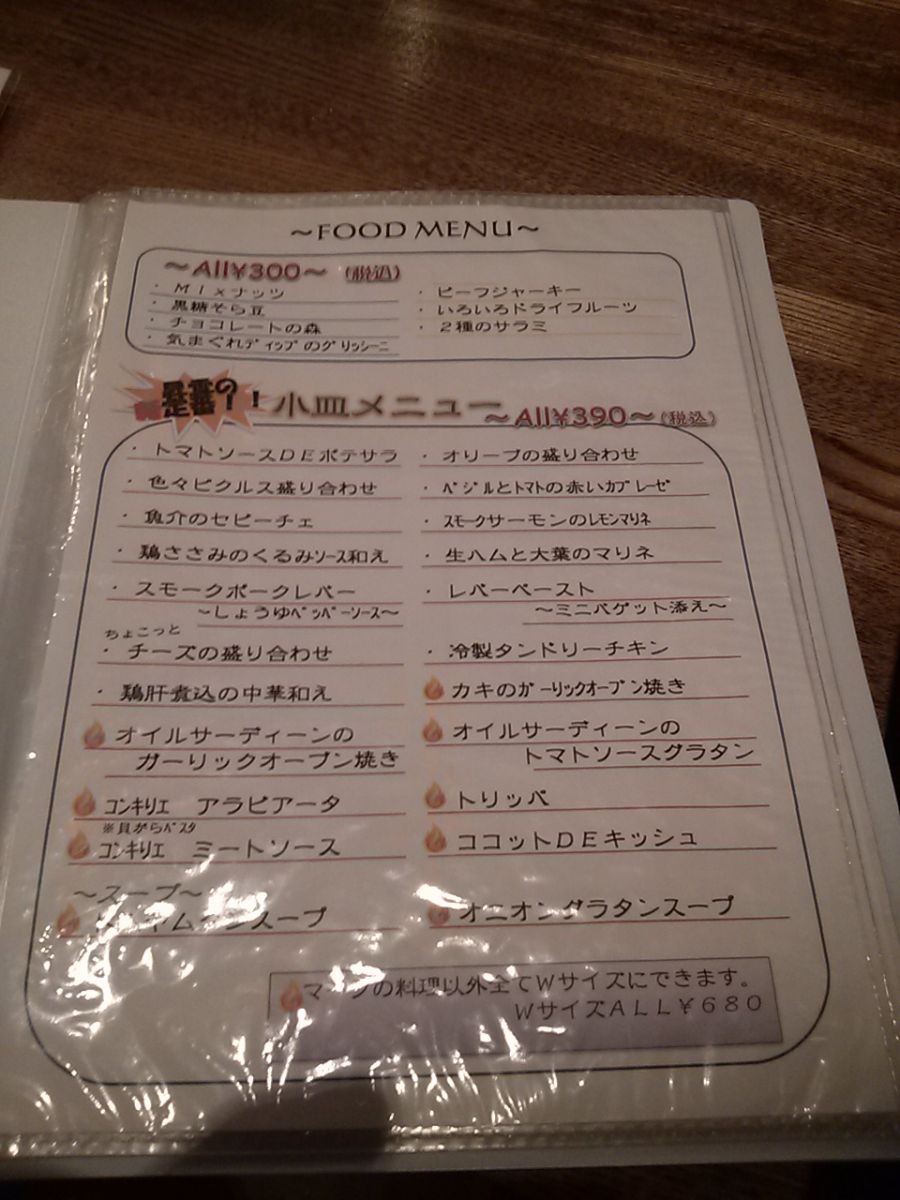 ～FOOD MENU～
～All¥300～ (税込)
・ＭＩｘナッツ
・黒糖そら豆
・チョコレートの森
・気まぐれディップのグリッシーニ
・ビーフジャーキー
・いろいろドライフルーツ
・２種のサラミ
定番の！！小皿メニュー ～All¥390～(税込)
・トマトソースＤＥポテサラ
・色々ピクルス盛り合わせ
・魚介のセビーチェ
・鶏ささみのくるみソース和え
・スモークポークレバー
～しょうゆペッパーソース～
ちょこっと
・チーズの盛り合わせ
・鶏肝煮込の中華和え
オイルサーディーンの
ガーリックオーブン焼き
コンキリエ　アラビアータ
※貝がらパスタ
コンキリエ　ミートソース
・オリーブの盛り合わせ
・バジルとトマトの赤いカプレーゼ
・スモークサーモンのレモンマリネ
・生ハムと大葉のマリネ
・レバーペースト
～ミニバゲット添え～
・冷製タンドリーチキン
カキのガーリックオーブン焼き
オイルサーディーンの
トマトソースグラタン
トリッパ
ココットＤＥキッシュ
～スープ～
ヤムクンスープ
オニオングラタンスープ
マークの料理以外全てＷサイズにできます。
ＷサイズＡＬＬ￥６８０